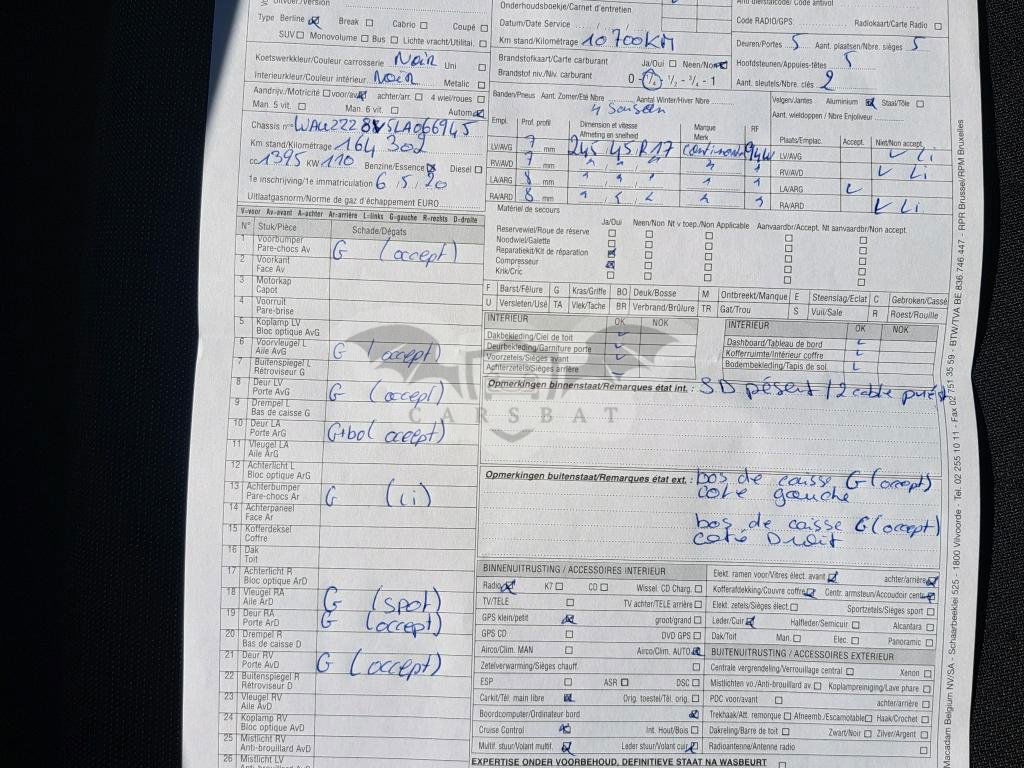 Type Berline Break Cabrio Coupé
SUV Monovolume Bus Lichte vracht/Utilitai.
Koetswerkkleur/Couleur carrosserie Noir Uni
Interieurkleur/Couleur intérieur Noir Metalic
Aandrijv./Motricité voor/av achter/arr. 4 wiel/roues
Man. 5 vit. Man. 6 vit. Autom.
Km stand/Kilométrage 164 302
cc 1395 KW 110 Benzine/Essence Diesel
1e inschrijving/1e immatriculation 6 5 20
Uitlaatgasnorm/Norme de gaz d'échappement EURO
Onderhoudsboekje/Carnet d'entretien
Datum/Date Service
Km stand/Kilométrage 10700KM
Brandstofkaart/Carte carburant Ja/Oui Neen/Non
Brandstof niv./Niv. carburant 0 - 1/4 - 1/2 - 3/4 - 1
Code RADIO/GPS. Radiokaart/Carte Radio
Deuren/Portes 5 Aant. plaatsen/Nbre. sièges 5
Hoofdsteunen/Appuies-têtes 5
Aant. sleutels/Nbre. clés 2
Banden/Pneus Aant. Zomer/Eté Nbre Aantal Winter/Hiver Nbre
4 Saison
Velgen/Jantes Aluminium Staal/Tôle
Aant. wieldoppen / Nbre Enjoliveur
Empl. Prof. profil Dimension et vitesse Afmeting en snelheid Marque Merk RF
LV/AVG 7 mm 245 45 R17 94W
RV/AVD 7 mm
LA/ARG 8 mm
RA/ARD 8 mm
Plaats/Emplac. Accept. Niet/Non accept.
LV/AVG Li
RV/AVD Li
LA/ARG
RA/ARD Li
Matériel de secours
Ja/Oui Neen/Non Nt v toep./Non Applicable Aanvaardbr/Accept. Nt aanvaardbr/Non accept.
Reservewiel/Roue de réserve
Noodwiel/Galette
Reparatiekit/Kit de réparation
Compresseur
Krik/Cric
F Barst/Fêlure G Kras/Griffe BO Deuk/Bosse M Ontbreekt/Manque E Steenslag/Eclat C Gebroken/Cassé
U Versleten/Usé TA Vlek/Tache BR Verbrand/Brûlure TR Gat/Trou S Vuil/Sale R Roest/Rouille
V-voor Av-avant A-achter Ar-arrière L-links G-gauche R-rechts D-droite
N° Stuk/Pièce Schade/Dégats
1 Voorbumper
Pare-chocs Av G (accept)
2 Voorkant
Face Av
3 Motorkap
Capot
4 Voorruit
Pare-brise
5 Koplamp LV
Bloc optique AvG
6 Voorvleugel L
Aile AvG G (accept)
7 Buitenspiegel L
Rétroviseur G
8 Deur LV
Porte AvG G (accept)
9 Drempel L
Bas de caisse G
10 Deur LA
Porte ArG G+bo( accept)
11 Vleugel LA
Aile ArG
12 Achterlicht L
Bloc optique ArG
13 Achterbumper
Pare-chocs Ar G (Li)
14 Achterpaneel
Face Ar
15 Kofferdeksel
Coffre
16 Dak
Toit
17 Achterlicht R
Bloc optique ArD
18 Vleugel RA
Aile ArD G (spot)
19 Deur RA
Porte ArD G (accept)
20 Drempel R
Bas de caisse D
21 Deur RV
Porte AvD G (accept)
22 Buitenspiegel R
Rétroviseur D
23 Vleugel RV
Aile AvD
24 Koplamp RV
Bloc optique AvD
25 Mistlicht RV
Anti-brouillard AvD
26 Mistlicht LV
INTERIEUR OK NOK
Dakbekleding/Ciel de toit
Deurbekleding/Garniture porte
Voorzetels/Sièges avant
Achterzetels/Sièges arrière
INTERIEUR OK NOK
Dashboard/Tableau de bord
Kofferruimte/Intérieur coffre
Bodembekleding/Tapis de sol
CARSBAT
Opmerkingen binnenstaat/Remarques état int. : SD présent / 2 cable
Opmerkingen buitenstaat/Remarques état ext. : bas de caisse G (accept)
cote gauche
bas de caisse G (accept)
coté Droit
BINNENUITRUSTING / ACCESSOIRES INTERIEUR
Radio K7 CD Wissel. CD Charg.
TV/TELE TV achter/TELE arrière
GPS klein/petit groot/grand
GPS CD DVD GPS
Airco/Clim. MAN Airco/Clim. AUTO
Zetelverwarming/Sièges chauff.
ESP ASR DSC
Carkit/Tél. main libre Orig. toestel/Tél. orig.
Boordcomputer/Ordinateur bord
Cruise Control Int. Hout/Bois
Multif. stuur/Volant multif. Leder stuur/Volant cuir
Elekt. ramen voor/Vitres élect. avant achter/arrière
Kofferafdekking/Couvre coffre Centr. armsteun/Accoudoir centr
Elekt. zetels/Sièges élect Sportzetels/Sièges sport
Leder/Cuir Halfleder/Semicuir Alcantara
Dak/Toit Man. Elec Panoramic
BUITENUITRUSTING / ACCESSOIRES EXTÉRIEUR
Centrale vergrendeling/Verrouillage central Xenon
Mistlichten vo./Anti-brouillard av. Koplampreiniging/Lave phare
PDC voor/avant achter/arrière
Trekhaak/Att. remorque Afneemb./Escamotable Haak/Crochet
Dakreling/Barre de toit Zwart/Noir Zilver/Argent
Radioantenne/Antenne radio
EXPERTISE ONDER VOORBEHOUD, DEFINITIEVE STAAT NA WASBEURT
Macadam Belgium NV/SA - Schaarbeeklei 525 - 1800 Vilvoorde - Tel. 02 255 10 11 - Fax 02 751 35 59 - BTW/TVA BE 836.746.447 - RPR Brussel/RPM Bruxelles